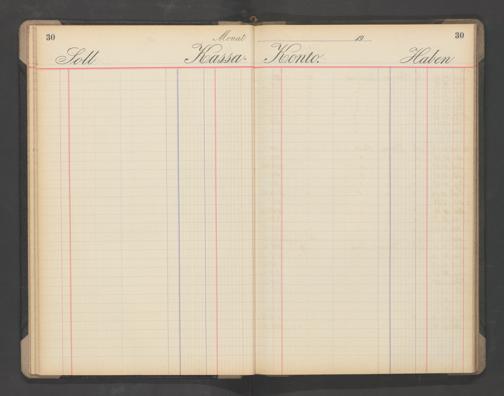 30 Monat 19 30
Soll Kassa- Konto. Haben